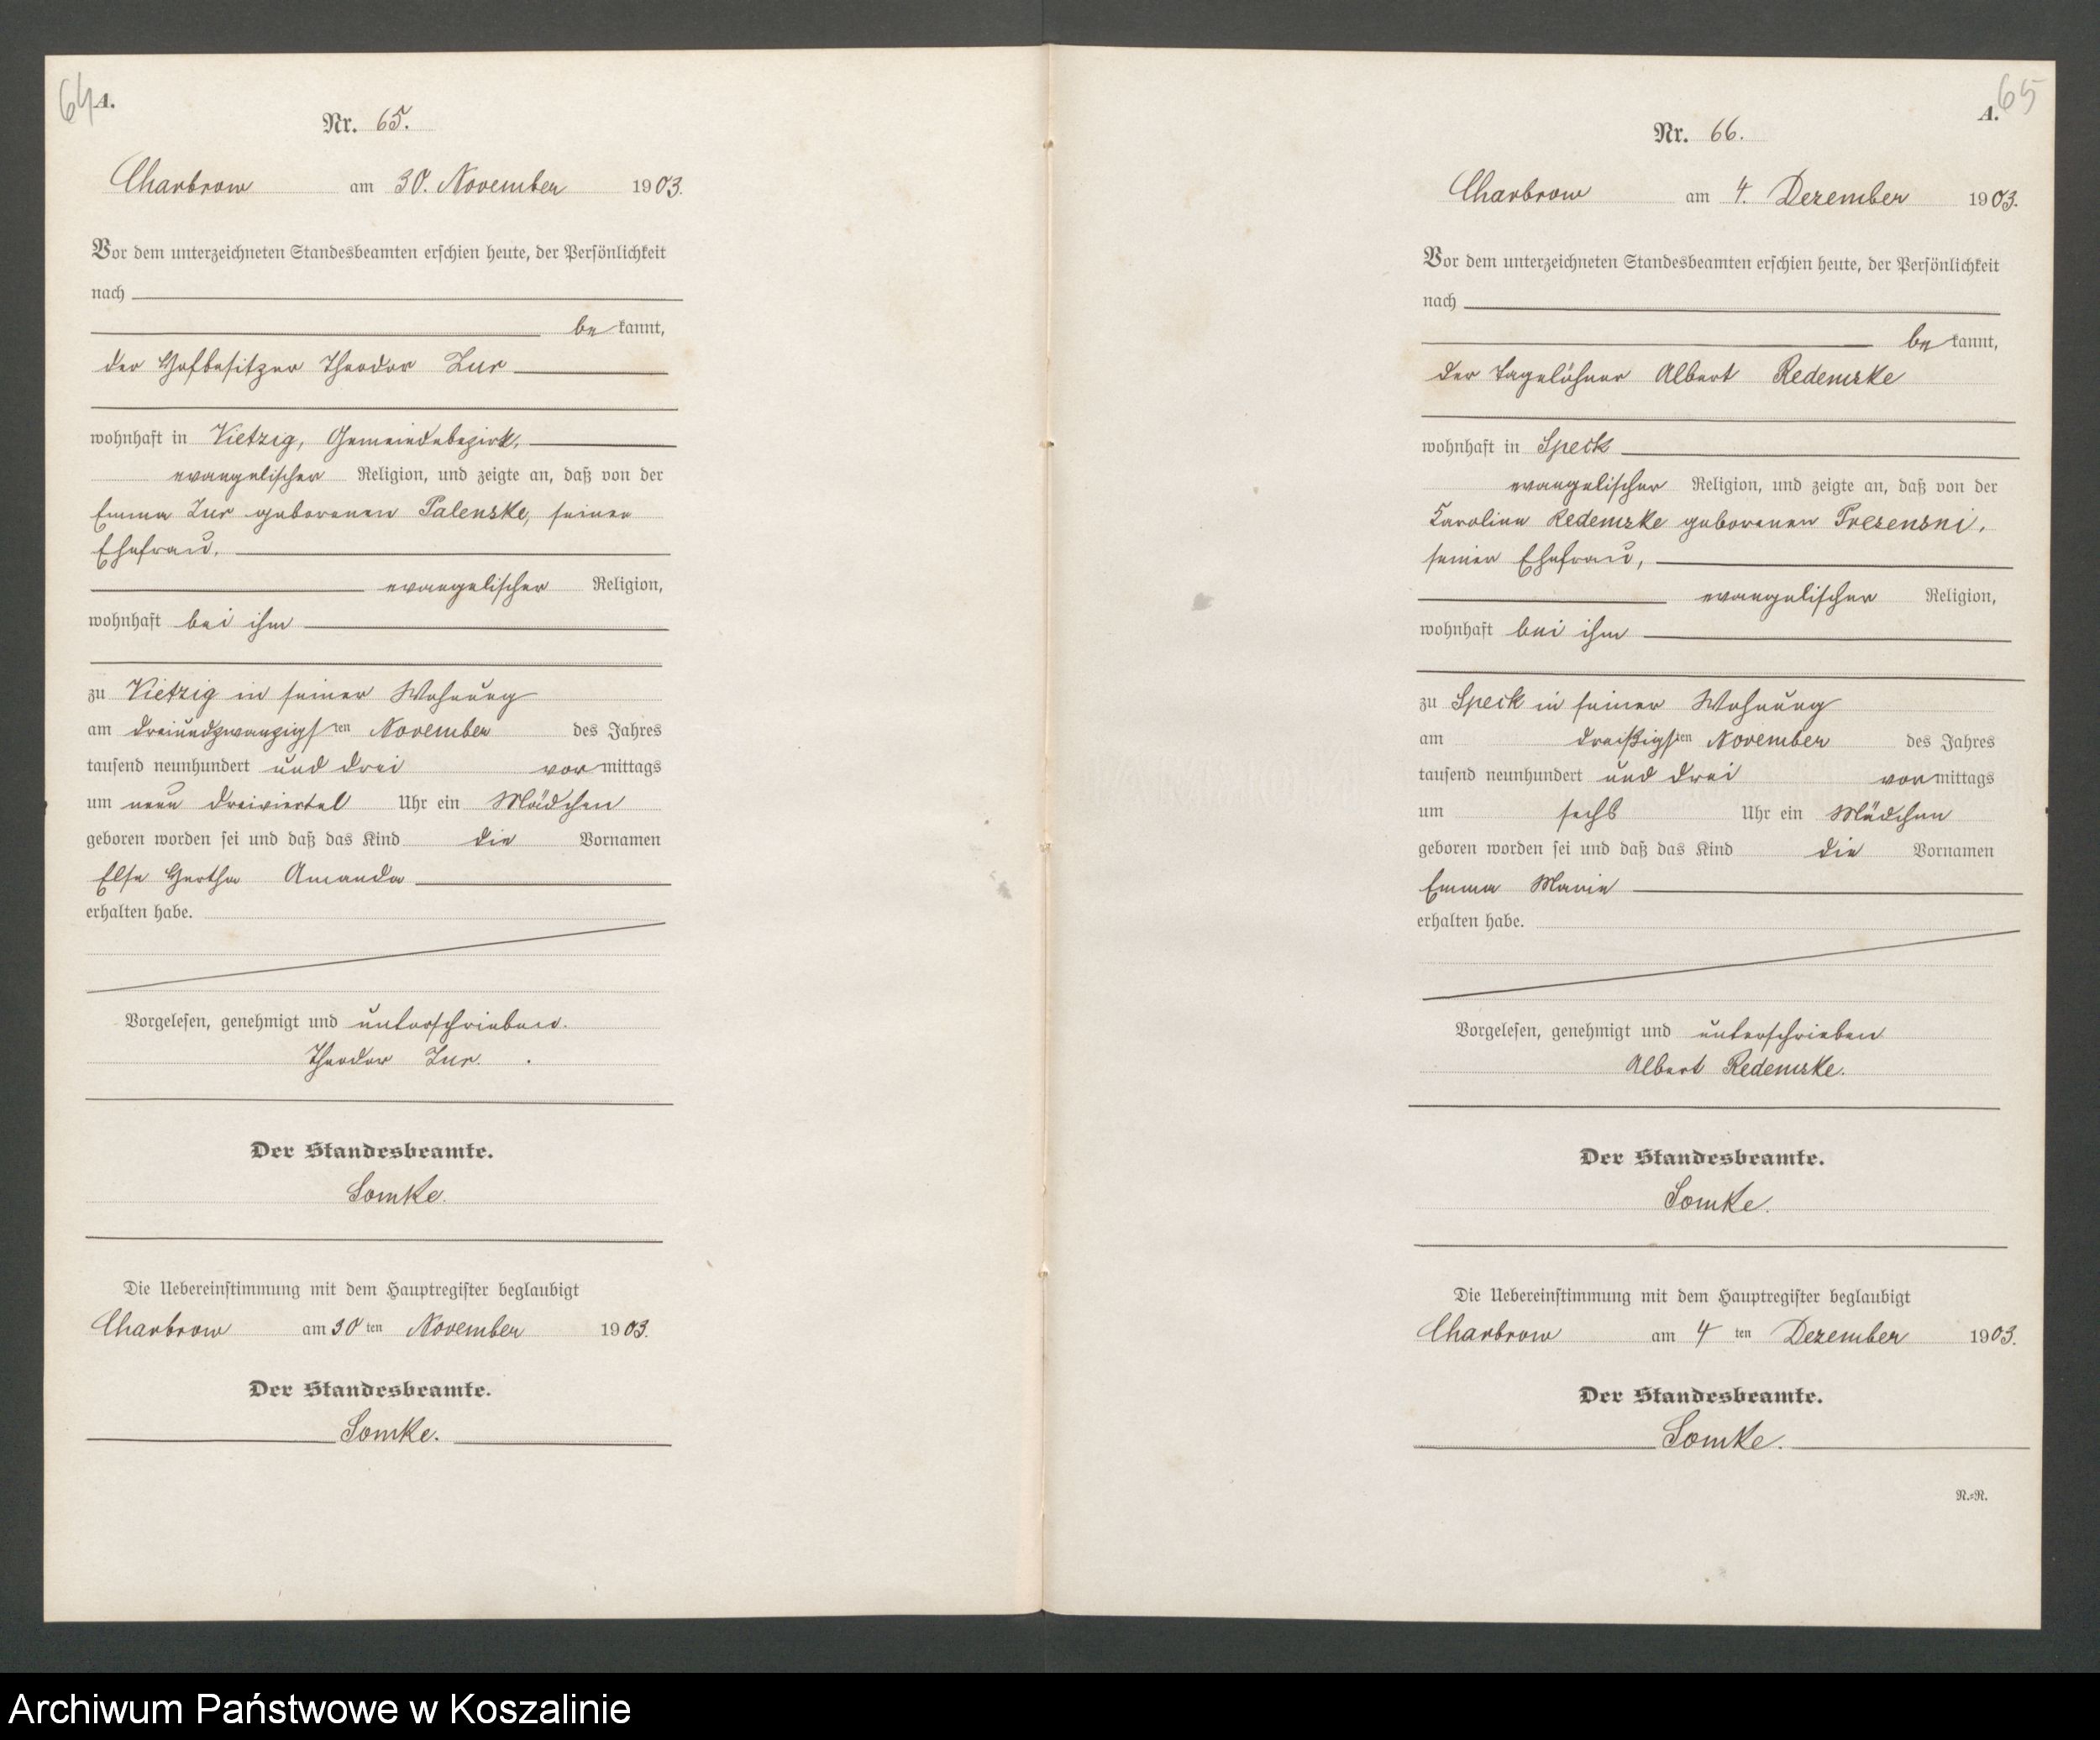 64 A.
Nr. 65.
Charbrow am 30. November 1903.
Vor dem unterzeichneten Standesbeamten erschien heute, der Persönlichkeit
nach
be kannt,
der Hofbesitzer Theodor Zur
wohnhaft in Vietzig, Gemeindebezirk,
evangelischer Religion, und zeigte an, daß von der
Emma Zur geborenen Palenske, seiner
Ehefrau,
evangelischer Religion,
wohnhaft bei ihm
zu Vietzig in seiner Wohnung
am dreiundzwanzigsten November des Jahres
tausend neunhundert und drei vormittags
um neun dreiviertel Uhr ein Mädchen
geboren worden sei und daß das Kind die Vornamen
Else Hertha Amanda
erhalten habe.
Vorgelesen, genehmigt und unterschrieben.
Theodor Zur.
Der Standesbeamte.
Somke.
Die Uebereinstimmung mit dem Hauptregister beglaubigt
Charbrow am 30 ten November 1903.
Der Standesbeamte.
Somke.
A. 65
Nr. 66.
Charbrow am 4. Dezember 1903.
Vor dem unterzeichneten Standesbeamten erschien heute, der Persönlichkeit
nach
be kannt,
der Tagelöhner Albert Redemske
wohnhaft in Speck
evangelischer Religion, und zeigte an, daß von der
Karoline Redemske geborenen
seiner Ehefrau,
evangelischer Religion,
wohnhaft bei ihm
zu Speck in seiner Wohnung
am dreißigsten November des Jahres
tausend neunhundert und drei vormittags
um sechs Uhr ein Mädchen
geboren worden sei und daß das Kind die Vornamen
Emma Marie
erhalten habe.
Vorgelesen, genehmigt und unterschrieben
Albert Redemske.
Der Standesbeamte.
Somke.
Die Uebereinstimmung mit dem Hauptregister beglaubigt
Charbrow am 4 ten Dezember 1903.
Der Standesbeamte.
Somke.
R.=R.
Archiwum Państwowe w Koszalinie